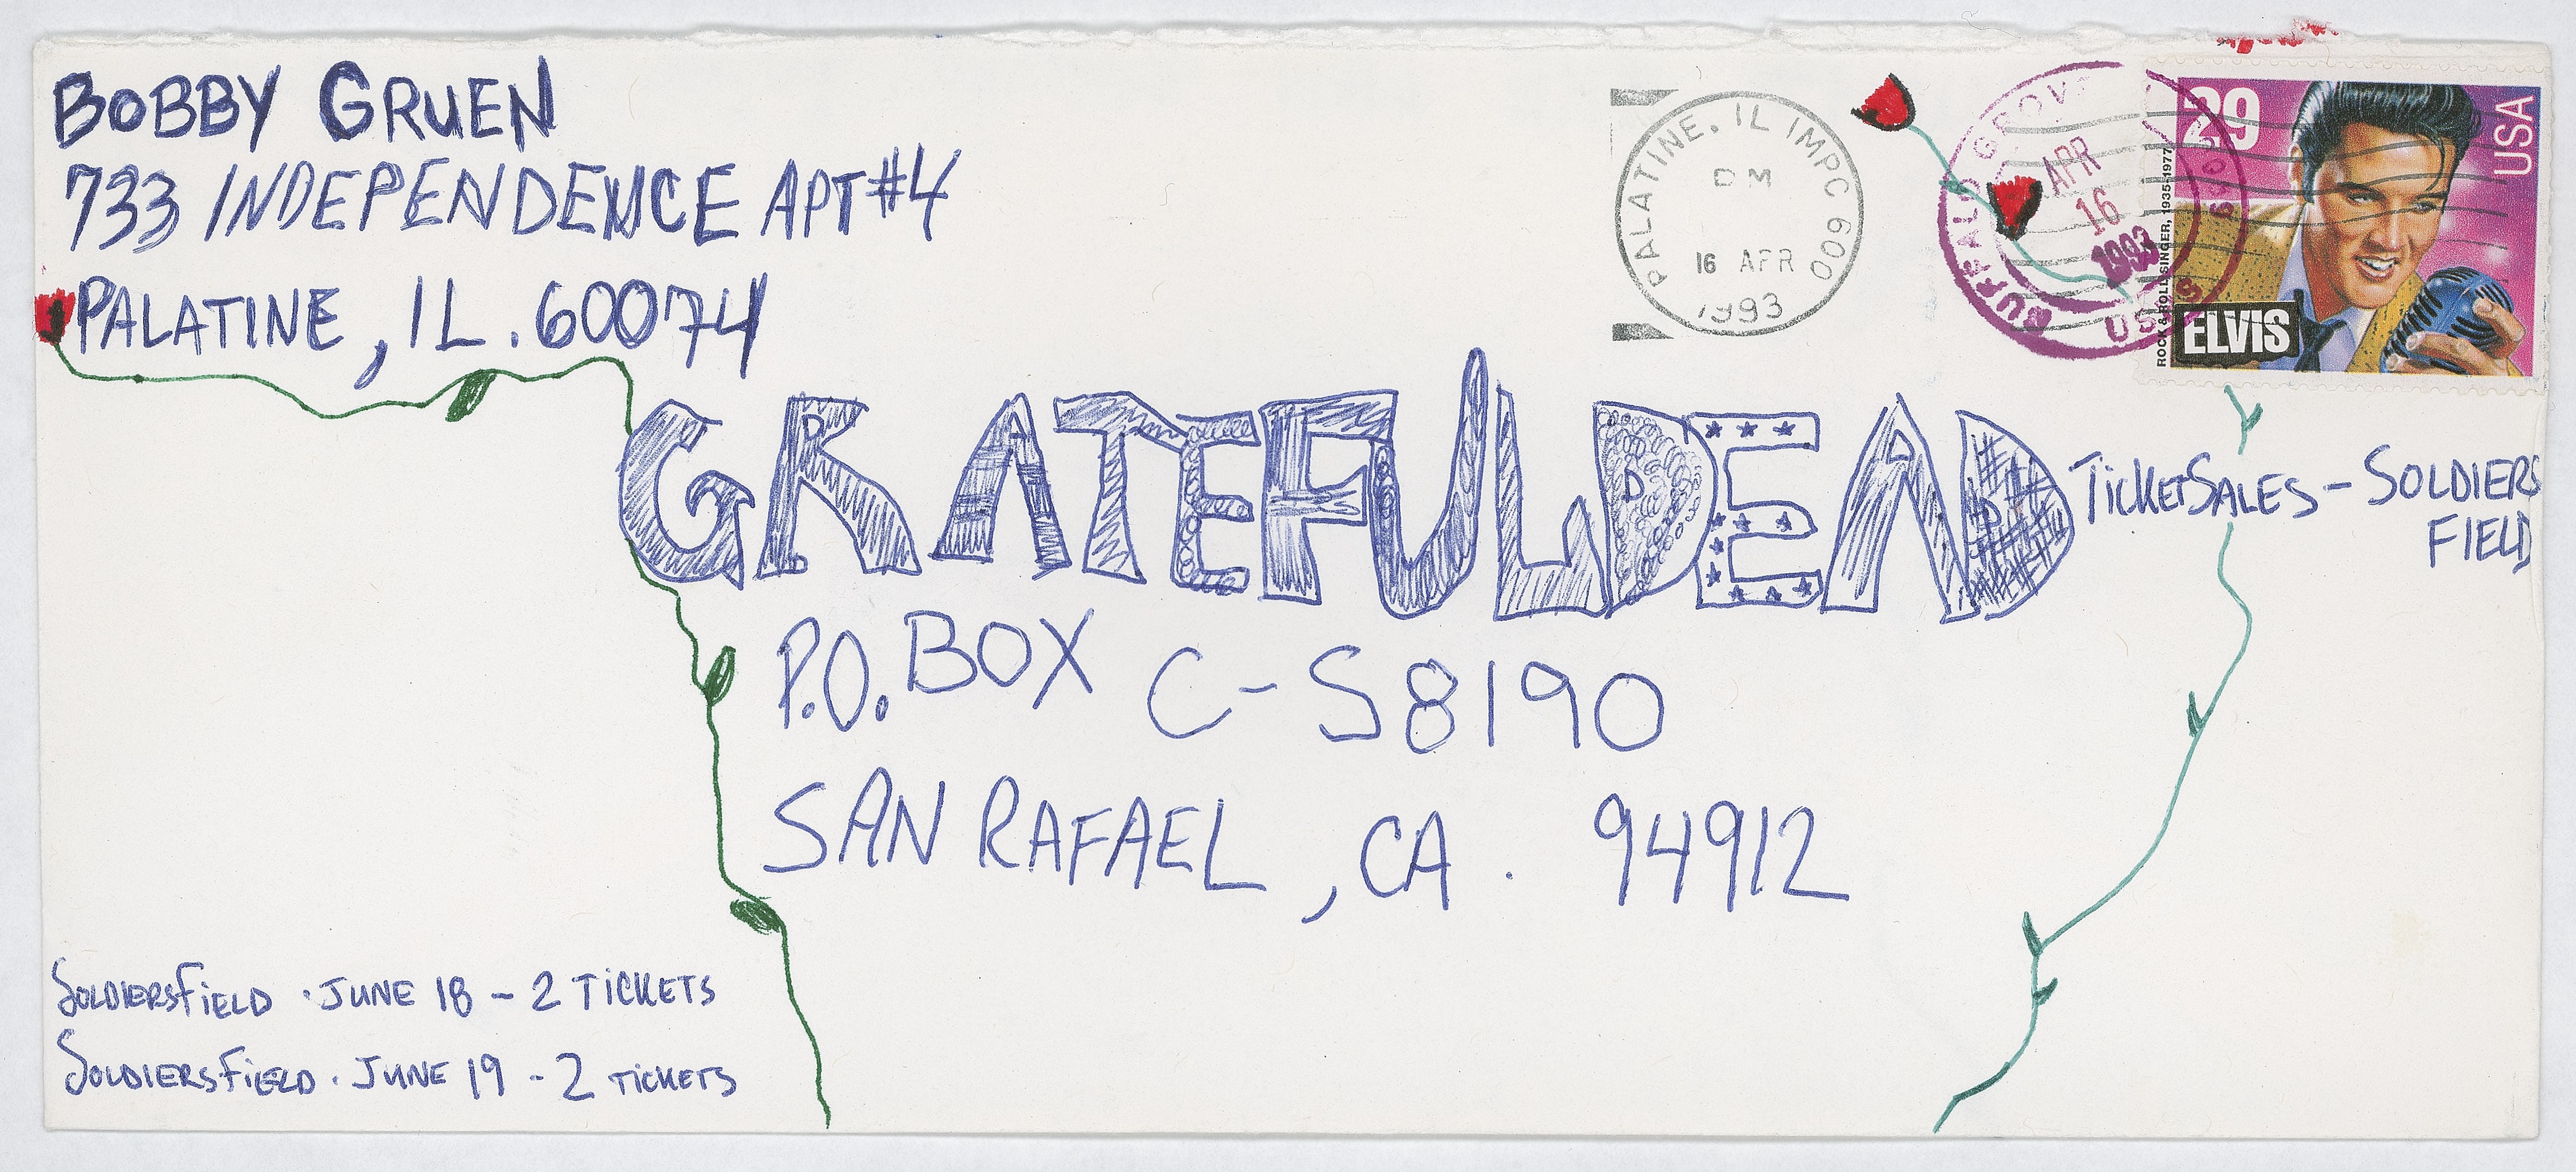 BOBBY GRUEN
733 INDEPENDENCE APT #4
PALATINE, IL. 60074
PALATINE, IL IMPC 600
PM
16 APR
1993
BUFFALO GROVE
APR
16
1993
USPS
29
USA
ROCK & ROLL SINGER, 1935-1977
ELVIS
GRATEFUL DEAD
TICKET SALES - SOLDIERS
FIELD
P.O. BOX C-S8190
SAN RAFAEL, CA. 94912
SOLDIERSFIELD · JUNE 18 - 2 TICKETS
SOLDIERSFIELD · JUNE 19 - 2 TICKETS